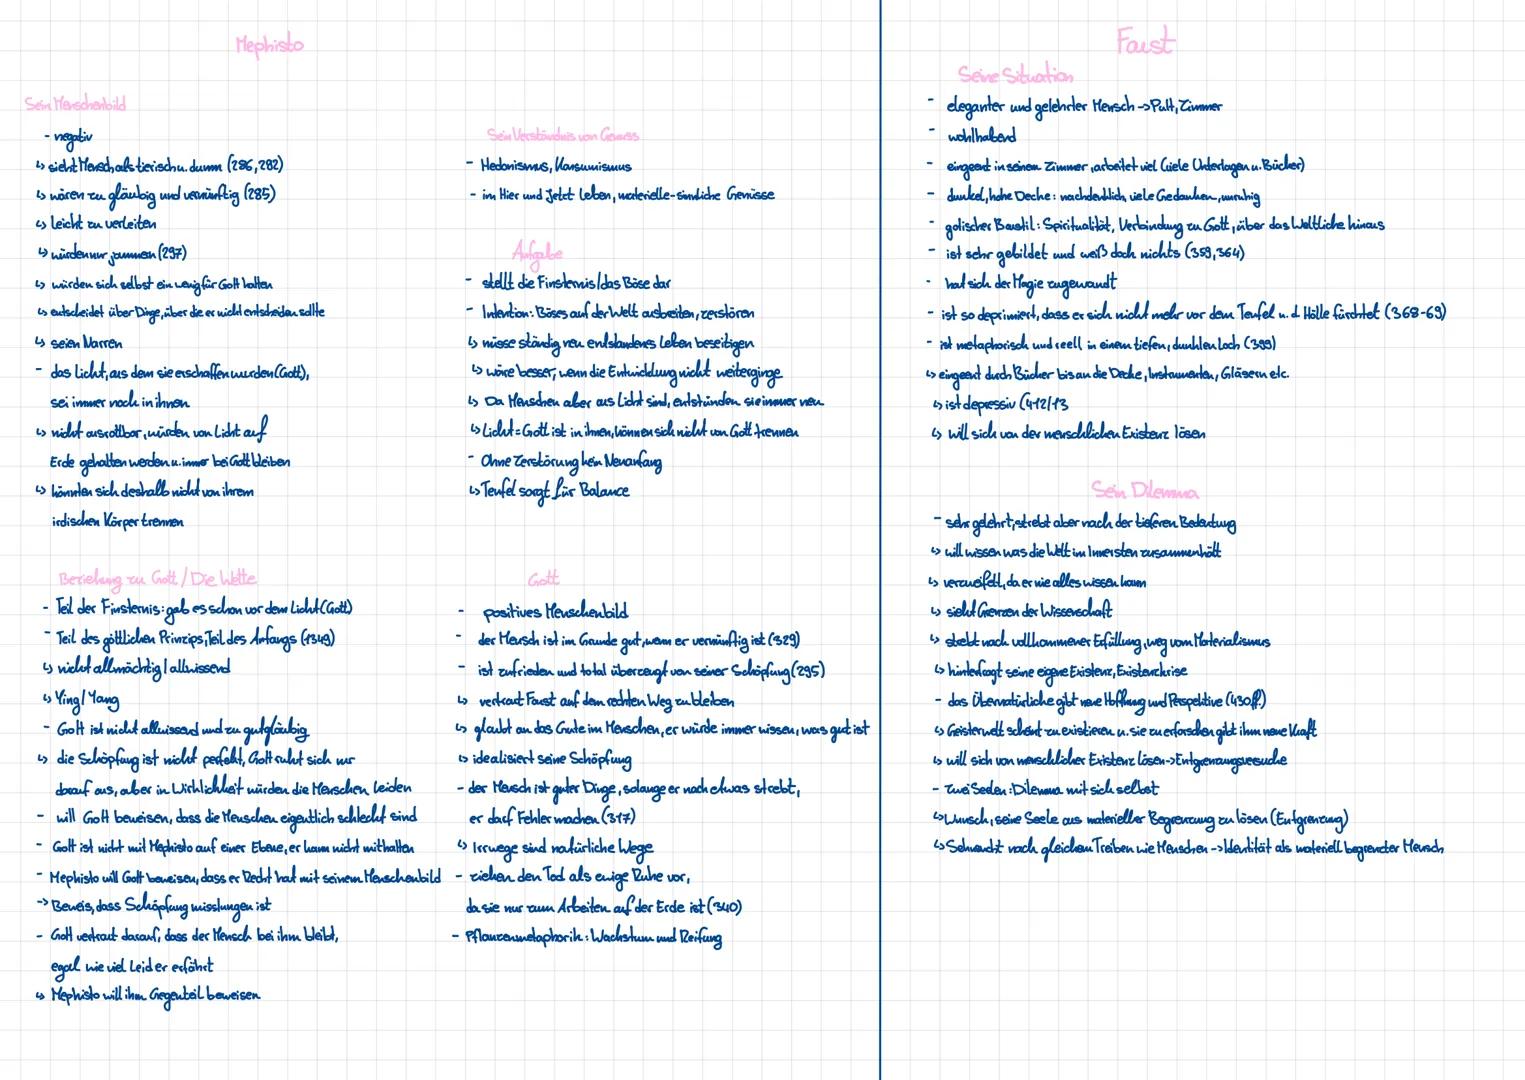 Mephisto
Sein Menschenbild
- negativ
↳ sieht Mensch als tierisch u. dumm (286, 282)
↳ wären zu gläubig und vernünftig (285)
↳ leicht zu verleiten
↳ würden nur jammen (297)
↳ würden sich selbst ein wenig für Gott halten
↳ entscheidet über Dinge, über die er nicht entscheiden sollte
↳ seien Narren
- das Licht, aus dem sie erschaffen wurden (Gott),
sei immer noch in ihnen
↳ nicht ausrottbar, würden von Licht auf
Erde gehalten werden u. immer bei Gott bleiben
↳ könnten sich deshalb nicht von ihrem
irdischen Körper trennen
Beziehung zu Gott / Die Wette
- Teil der Finsternis: gab es schon vor dem Licht (Gott)
- Teil des göttlichen Prinzips, Teil des Anfangs (1349)
↳ nicht allmächtig / allwissend
↳ Ying / Yang
- Gott ist nicht allwissend und zu gutgläubig
↳ die Schöpfung ist nicht perfekt, Gott ruht sich nur
darauf aus, aber in Wirklichkeit würden die Menschen leiden
- will Gott beweisen, dass die Menschen eigentlich schlecht sind
- Gott ist nicht mit Mephisto auf einer Ebene, er kann nicht mithalten
- Mephisto will Gott beweisen, dass er Recht hat mit seinem Menschenbild
-> Beweis, dass Schöpfung misslungen ist
- Gott vertraut darauf, dass der Mensch bei ihm bleibt,
egal wie viel Leid er erfährt
↳ Mephisto will ihm Gegenteil beweisen
Sein Verständnis von Genuss
- Hedonismus, Konsumismus
- im Hier und Jetzt leben, materielle-sinnliche Genüsse
Aufgabe
- stellt die Finsternis / das Böse dar
- Intention: Böses auf der Welt ausbreiten, zerstören
↳ müsse ständig neu entstandenes Leben beseitigen
↳ wäre besser, wenn die Entwicklung nicht weiterginge
↳ Da Menschen aber aus Licht sind, entstünden sie immer neu
↳ Licht = Gott ist in ihnen, können sich nicht von Gott trennen
- Ohne Zerstörung kein Neuanfang
↳ Teufel sorgt für Balance
Gott
- positives Menschenbild
- der Mensch ist im Grunde gut, wenn er vernünftig ist (329)
- ist zufrieden und total überzeugt von seiner Schöpfung (295)
↳ vertraut Faust auf dem rechten Weg zu bleiben
↳ glaubt an das Gute im Menschen, er würde immer wissen, was gut ist
↳ idealisiert seine Schöpfung
- der Mensch ist guter Dinge, solange er nach etwas strebt,
er darf Fehler machen (317)
↳ Irrwege sind natürliche Wege
- ziehen den Tod als ewige Ruhe vor,
da sie nur zum Arbeiten auf der Erde ist (340)
- Pflanzenmetaphorik: Wachstum und Reifung
Faust
Seine Situation
- eleganter und gelehrter Mensch -> Pult, Zimmer
- wohlhabend
- eingeengt in seinem Zimmer, arbeitet viel (viele Unterlagen u. Bücher)
- dunkel, hohe Decke: nachdenklich, viele Gedanken, unruhig
- gotischer Baustil: Spiritualität, Verbindung zu Gott, über das Weltliche hinaus
- ist sehr gebildet und weiß doch nichts (359, 364)
- hat sich der Magie zugewandt
- ist so deprimiert, dass er sich nicht mehr vor dem Teufel u. d. Hölle fürchtet (368-69)
- ist metaphorisch und reell in einem tiefen, dunklen Loch (399)
↳ eingeengt durch Bücher bis an die Decke, Instrumenten, Gläsern etc.
↳ ist depressiv (412/13
↳ will sich von der menschlichen Existenz lösen
Sein Dilemma
- sehr gelehrt, strebt aber nach der tieferen Bedeutung
↳ will wissen was die Welt im Innersten zusammenhält
↳ verzweifelt, da er nie alles wissen kann
↳ sieht Grenzen der Wissenschaft
↳ strebt nach vollkommener Erfüllung, weg vom Materialismus
↳ hinterfragt seine eigene Existenz, Existenzkrise
- das Übernatürliche gibt neue Hoffnung und Perspektive (430ff.)
↳ Geisterwelt scheint zu existieren u. sie zu erforschen gibt ihm neue Kraft
↳ will sich von menschlicher Existenz lösen -> Entgrenzungsversuche
- zwei Seelen: Dilemma mit sich selbst
↳ Wunsch, seine Seele aus materieller Begrenzung zu lösen (Entgrenzung)
↳ Sehnsucht nach gleichem Treiben wie Menschen -> Identität als materiell begrenzter Mensch